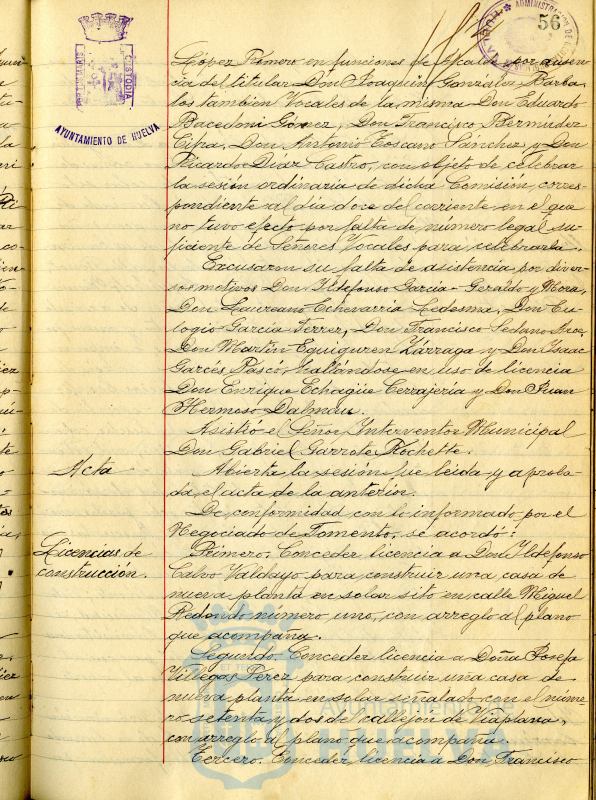 PORTUS MARIS
CUSTODIA
AYUNTAMIENTO DE HUELVA
ADMINISTRACION DE
HUELVA
56
López Romero en funciones de Alcalde por ausen
cia del titular Don Joaquín González Barba
los tambien Vocales de la misma Don Eduardo
Bacedoni Gómez, Don Francisco Bermúdez
Cifra, Don Antonio Toscano Sánchez y Don
Ricardo Díaz Castro, con objeto de celebrar
la sesión ordinaria de dicha Comisión, corres
pondiente al día doce del corriente en el que
no tuvo efecto por falta de número legal su
ficiente de Señores Vocales para celebrarla.
Excusaron su falta de asistencia por diver
sos motivos Don Ildefonso Garcia-Geraldo y Mora,
Don Laureano Echevarría Ledesma, Don Eu
logio Garcia Ferrer, Don Francisco Sedano
Don Martín Eguiguren Zárraga y Don Isaac
Garcés Pasco, hallándose en uso de licencia
Don Enrique Echagüe Cerrajería y Don Juan
Hermoso Dalmau.
Asistió el Señor Interventor Municipal
Don Gabriel Garrote Rochette.
Acta
Abierta la sesión fue leída y aproba
da, el acta de la anterior.
De conformidad con lo informado por el
Negociado de Fomento, se acordó:
Licencias de
construcción.
Primero. Conceder licencia a Don Ildefonso
Calvo Valdayo para construir una casa de
nueva planta en solar sito en calle Miguel
Redondo número uno, con arreglo al plano
que acompaña.
Segundo. Conceder licencia a Doña Josefa
Villegas Pérez para construir una casa de
nueva planta en solar señalado con el núme
ro setenta y dos de callejón de Viaplana,
con arreglo al plano que acompaña.
Tercero. Conceder licencia a Don Francisco
Ayuntamiento de
HUELVA